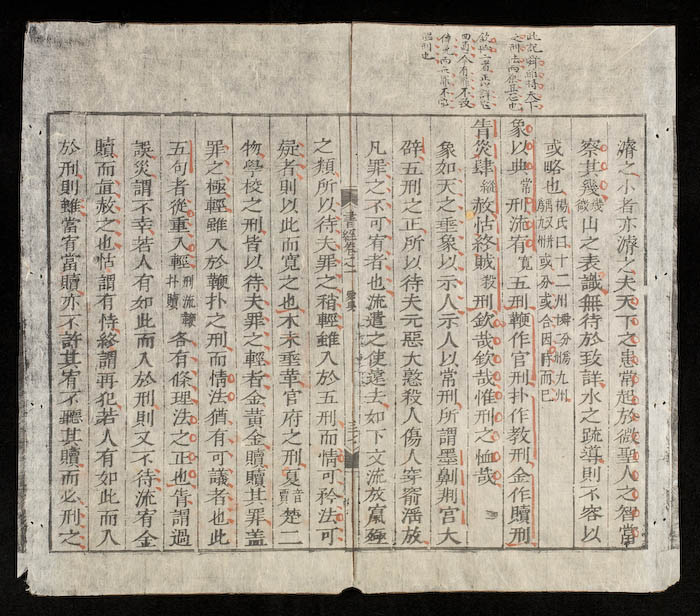 此記舜維持天下
之刑法而原其心也
濟之小者亦濟之夫天下之患常起於微聖人之智當
察其幾微山之表識無待於致詳水之疏導則不容以
或略也楊氏曰十二州
九州或分或合因時而已
象以典常刑流宥寬五刑鞭作官刑扑作教刑金作贖刑
眚災肆縱赦怙終賊殺刑欽哉欽哉惟刑之恤哉
象如天之垂象以示人示人以常刑所謂墨劓剕宮大
辟五刑之正所以待夫元惡大憝殺人傷人穿窬淫放
凡罪之不可宥者也流遣之使遠去如下文流放竄殛
書經卷之一 舜典
之類所以待夫罪之稍輕雖入於五刑而情可矜法可
疑者則以此而寬之也木末垂革官府之刑夏音賈楚二
物學校之刑皆以待夫罪之輕者金黃金贖贖其罪盖
罪之極輕雖入於鞭扑之刑而情法猶有可議者也此
五句者從重入輕刑流鞭扑贖各有條理法之正也眚謂過
誤災謂不幸若人有如此而入於刑則又不待流宥金
贖而直赦之也怙謂有恃終謂再犯若人有如此而入
於刑則雖當宥當贖亦不許其宥不聽其贖而必刑之